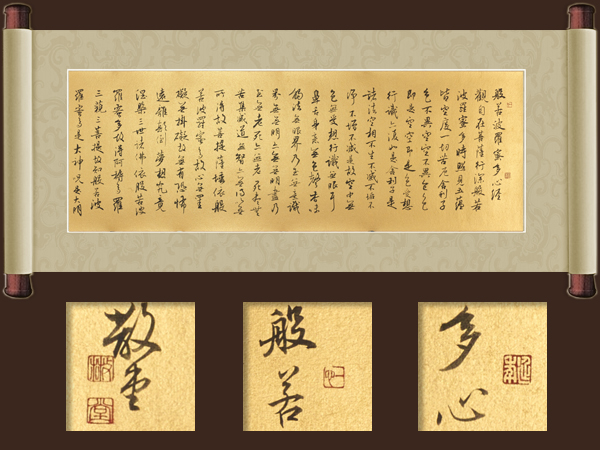 般若波羅蜜多心經
觀自在菩薩行深般若
波羅蜜多時照見五蘊
皆空度一切苦厄舍利子
色不異空空不異色色
即是空空即是色受想
行識亦復如是舍利子是
諸法空相不生不滅不垢不
淨不增不減是故空中無
色無受想行識無眼耳
鼻舌身意無色聲香味
觸法無眼界乃至無意識
界無無明亦無無明盡乃
至無老死亦無老死盡無
苦集滅道無智亦無得以無
所得故菩提薩埵依般
若波羅蜜多故心無罣
礙無罣礙故無有恐怖
遠離顛倒夢想究竟
涅槃三世諸佛依般若波
羅蜜多故得阿耨多羅
三藐三菩提故知般若波
羅蜜多是大神咒是大明
般若
多心